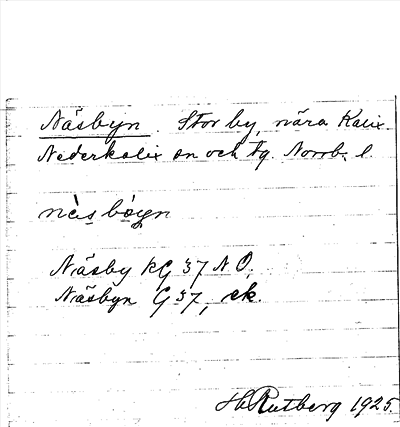 Näsbyn. Stor by, nära Kalix.
Nederkalix sn och tg. Norrb. l.
Näsby KG 37 N O.
Näsbyn G 37, ek.
Hl Rutberg 1925.